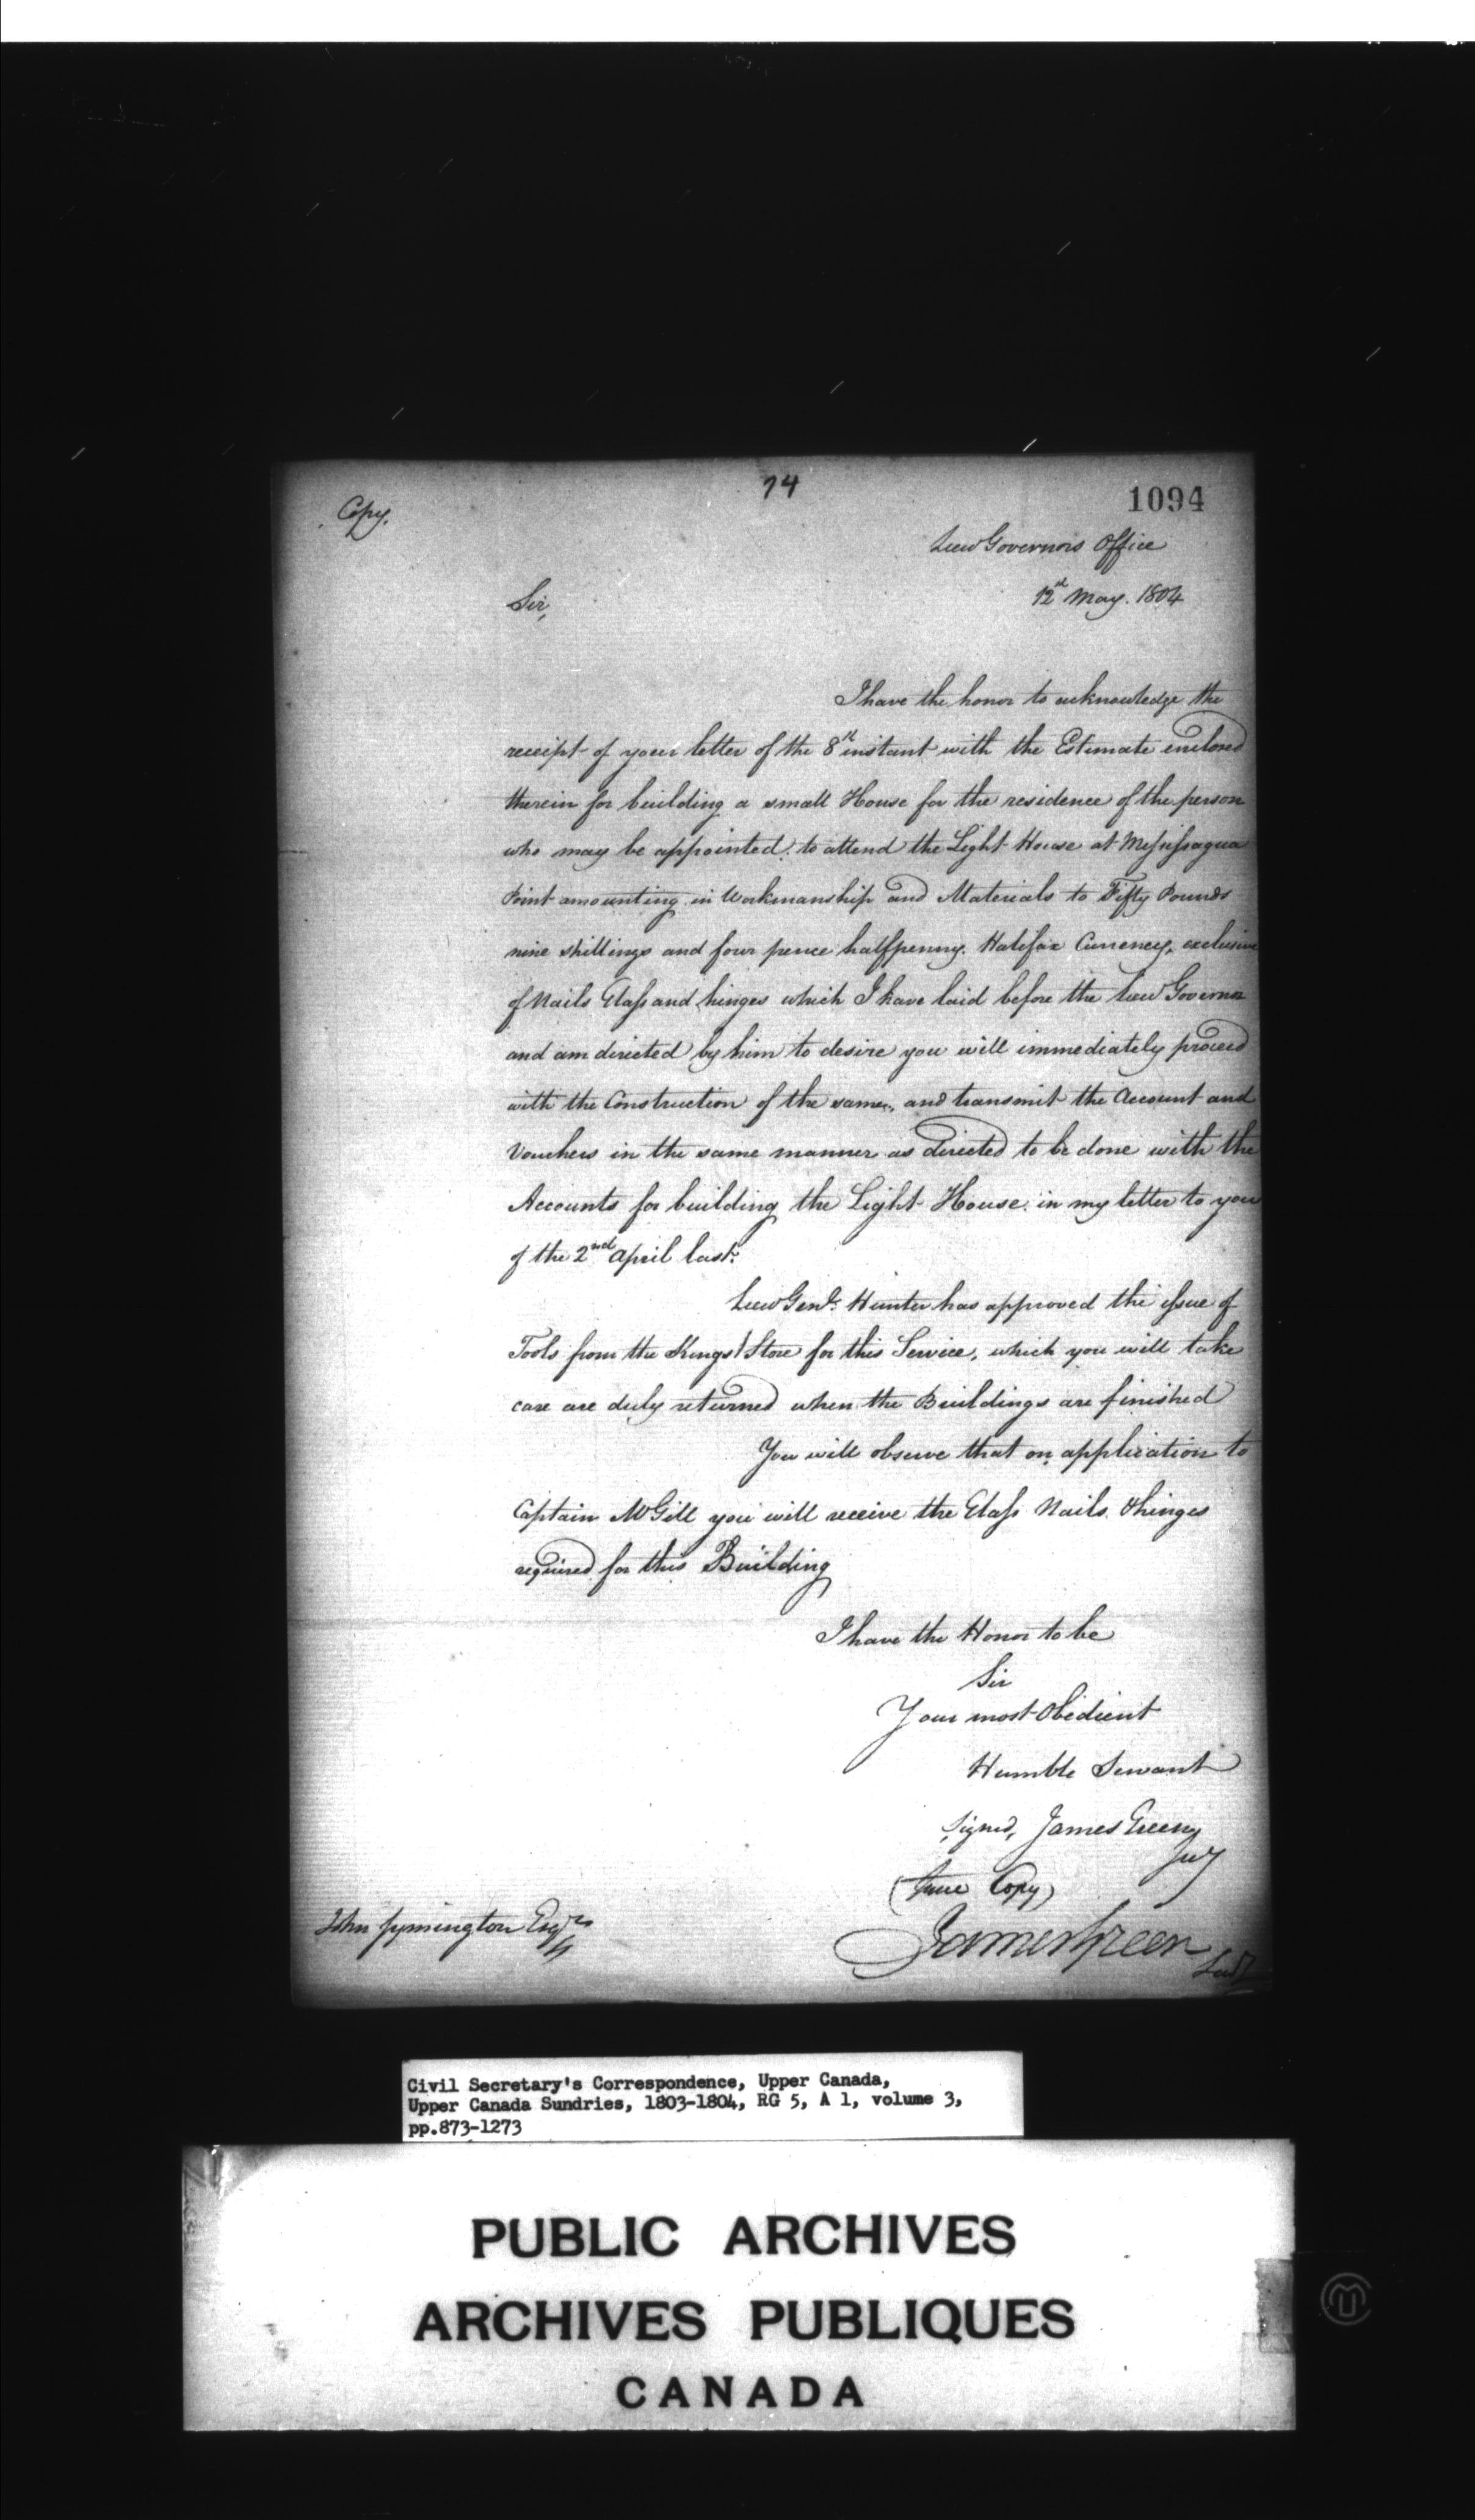 74
1094
Copy.
Lieu Governors Office
12th May. 1804
Sir,
I have the honor to acknowledge the
receipt of your letter of the 8th instant with the Estimate enclosed
therein for building a small House for the residence of the person
who may be appointed to attend the Light House at Mississagua
Point amounting in Workmanship and Materials to Fifty Pounds
nine shillings and four pence halfpenny. Halifax Currency, exclusive
of Nails Glass and hinges which I have laid before the Lieu Governor
and am directed by him to desire you will immediately proceed
with the Construction of the same, and transmit the Account and
Vouchers in the same manner as directed to be done with the
Accounts for building the Light House in my letter to you
of the 2nd April last.
Lieu Genl. Hunter has approved the issue of
Tools from the Kings Store for this Service, which you will take
care are duly returned when the Buildings are finished
You will observe that on application to
Captain McGill you will receive the Glass Nails & hinges
required for this Building
I have the Honor to be
Sir
Your most Obedient
Humble Servant
Signed, James Green
Secy
(True Copy)
John Symington Esqre
James Green
Secy
Civil Secretary's Correspondence, Upper Canada,
Upper Canada Sundries, 1803-1804, RG 5, A 1, volume 3,
pp.873-1273
PUBLIC ARCHIVES
ARCHIVES PUBLIQUES
CANADA